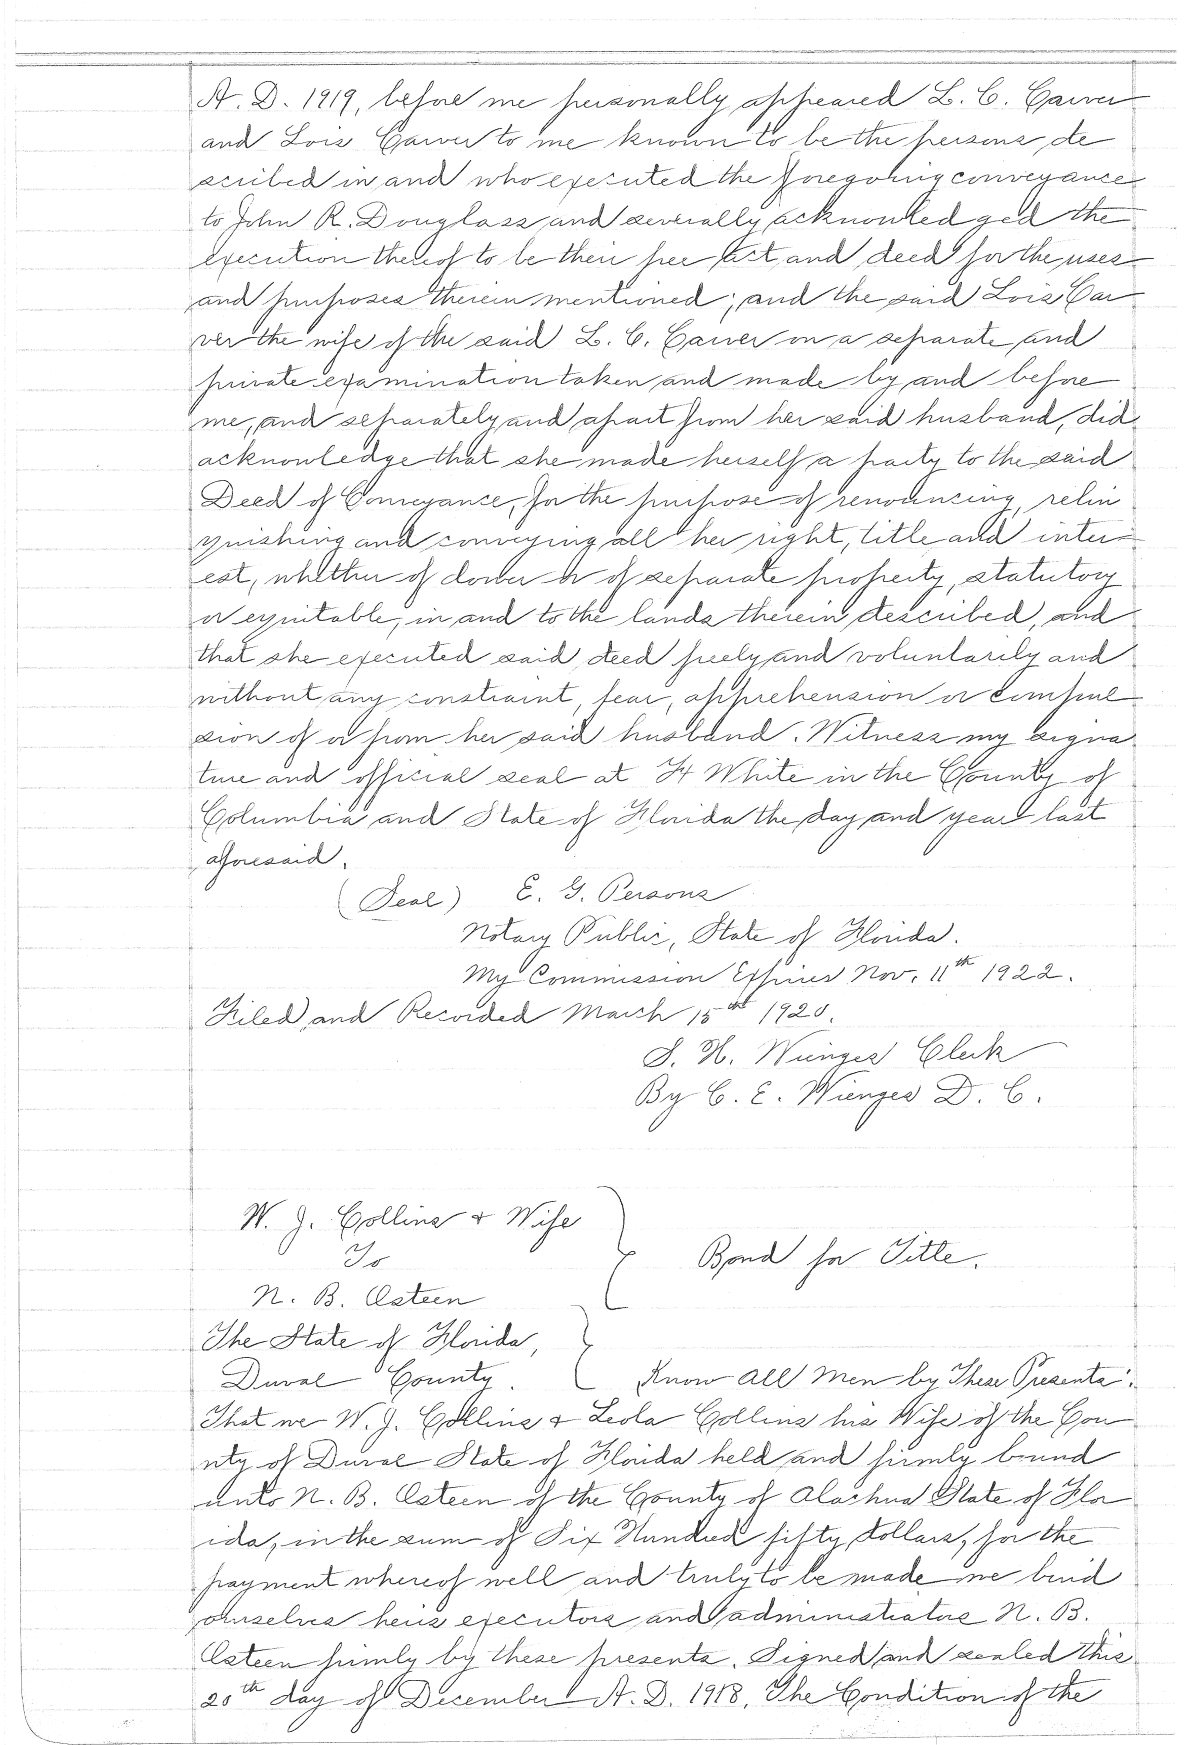 A. D. 1919, before me personally appeared L. C. Carver
and Lois Carver to me known to be the persons de
scribed in and who executed the foregoing conveyance
to John R. Douglass and severally acknowledged the
execution thereof to be their free act and deed for the uses
and purposes therein mentioned; and the said Lois Car
ver the wife of the said L. C. Carver on a separate and
private examination taken and made by and before
me, and separately and apart from her said husband, did
acknowledge that she made herself a party to the said
Deed of Conveyance, for the purpose of renouncing, relin
quishing and conveying all her right, title and inter
est, whether of dower or of separate property, statutory
or equitable, in and to the lands therein described, and
that she executed said deed freely and voluntarily and
without any constraint, fear, apprehension or compul
sion of or from her said husband. Witness my signa
ture and official seal at Ft White in the County of
Columbia and State of Florida the day and year last
aforesaid.
(Seal) E. G. Persons
Notary Public, State of Florida.
My Commission Expires Nov. 11th 1922.
Filed and Recorded March 15th 1920.
S. H. Wienges Clerk
By C. E. Wienges D. C.
W. J. Collins & Wife
To
Bond for Title.
N. B. Osteen
The State of Florida,
Duval County. Know All Men by These Presents:
That we W. J. Collins & Leola Collins his Wife of the Cou
nty of Duval State of Florida held and firmly bound
unto N. B. Osteen of the County of Alachua State of Flor
ida, in the sum of Six Hundred fifty dollars, for the
payment whereof well and truly to be made we bind
ourselves heirs executors and administrators N. B.
Osteen firmly by these presents. Signed and sealed this
20th day of December A. D. 1918. The Condition of the